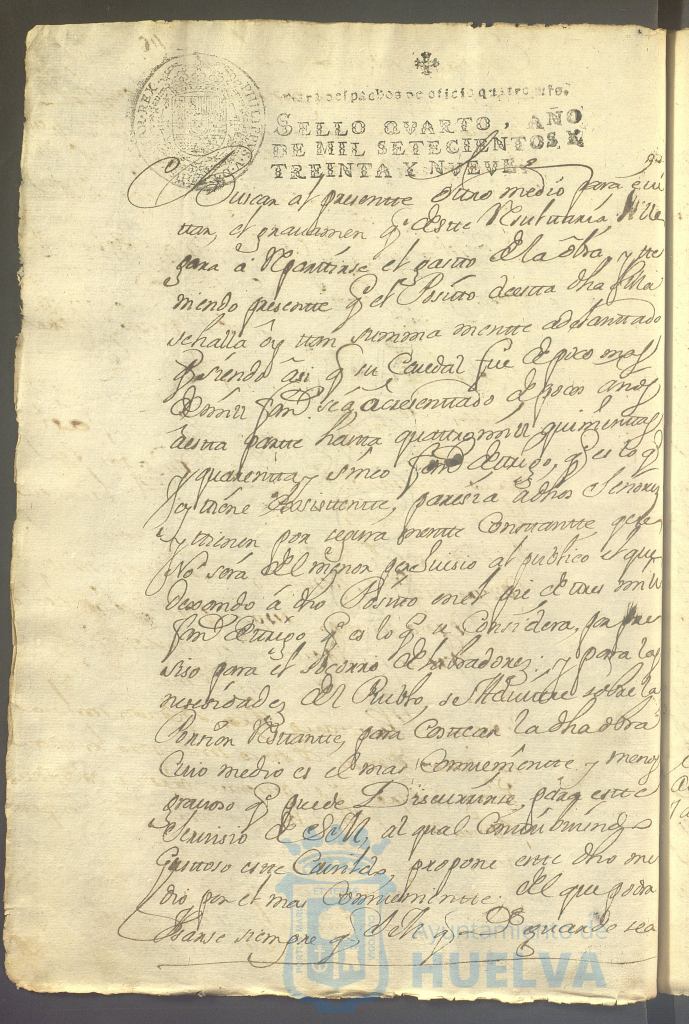 Para despachos de oficio quatro mrs.
SELLO QVARTO, AÑO
DE MIL SETECIENTOS Y
TREINTA Y NVEVE.
Buscar al presentte otro medio para evi
ttar, el gravamen q. de estte Resultaria
a Reparttirse el gastto de la obra, y tte
niendo presentte q el Positto de estta dha Villa
se halla oy ttan summa mentte adelanttado
q siendo asi q su Caudal fue de poco mas
de mil fans. se á acresenttado de pocos años
a estta partte hastta quattro mil quinienttas
y quarentta y sinco fans. de ttrigo, q es lo q
oy ttiene Exsisttentte, paresia a dhos Señores
y ttienen por segura mentte Consttantte q
No será del menor perJuisio al publico el que
dexando á dho Positto en el pie de ttres mill
fans. de ttrigo q es lo q se Considera, por pre
siso para el socorro de labradores; y para las
nesesidades del Pueblo, se sobre la
Porsion Resttantte, para Costtear la dha obra
Cuio medio es el mas Comveniente y menos
gravoso q puede Discurrirse, para estte
Servisio de S.M, al qual
Gusttoso estte Cavildo, propone estte dho me
dio por el mas Comvenientte; del que podra
Usarse siempre q. quando sea
Ayuntamiento de
HUELVA